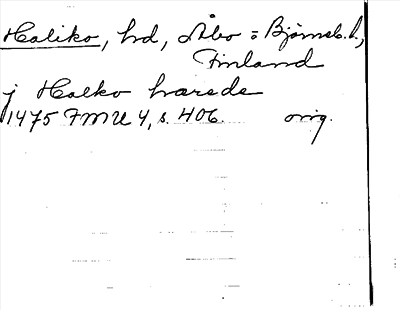 Haliko, hd, Åbo = Bjørneb. l.,
Finland
j Halko hærede
1475 FMU 4, s. 406. orig.